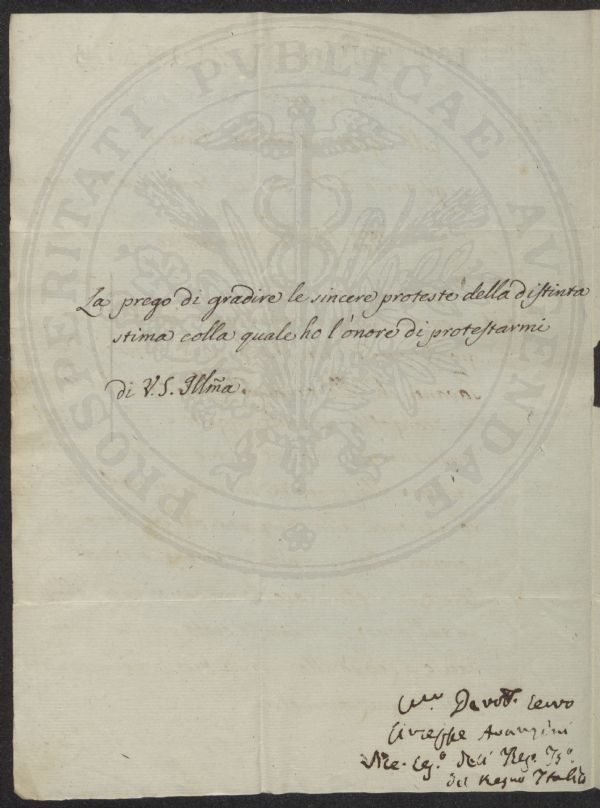 PROSPERITATI PVBLICAE AVGENDAE
La prego di gradire le sincere proteste della distinta
stima colla quale ho l'onore di protestarmi
di V. S. Illm̃a
Devot. servo
Giuseppe Avanzini
del Regno Italia